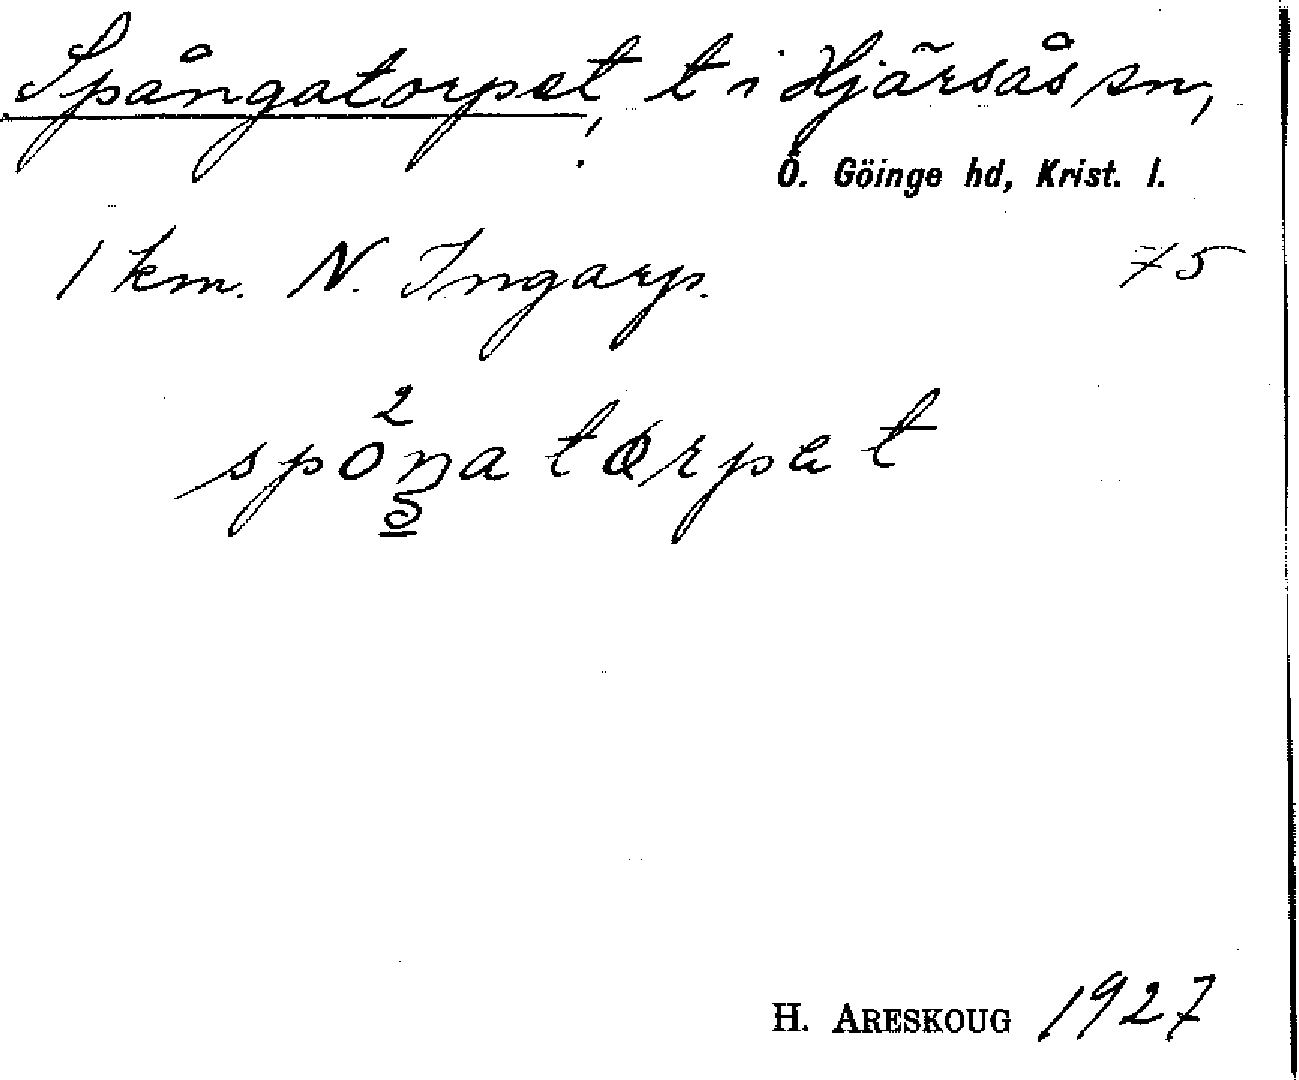 Spångatorpet, t i Hjärsås sn,
Ö. Göinge hd, Krist. l.
1 km. N. Ingarp. 75
2
spoŋatɷrpet
H. ARESKOUG 1927